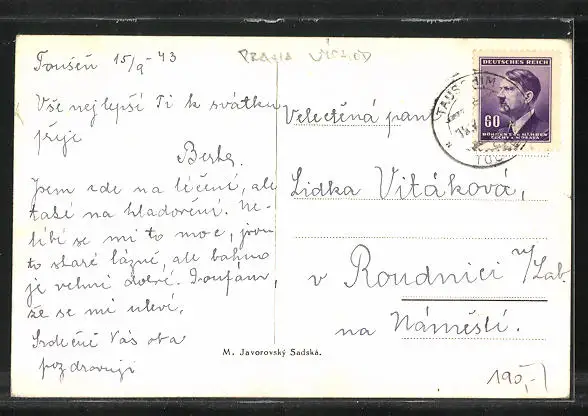 Toušeň 15/9 - 43
Vše nejlepší Ti k svátku
přeje
Berta.
Jsem zde na léčení, ale
také na hladovění. Ne-
líbí se mi to moc, jsou
to staré lázně, ale bahno
je velmi dobré. Doufám,
že se mi uleví.
Srdečně Vás oba
pozdravuji
DEUTSCHES REICH
60
BÖHMEN u. MÄHREN
ČECHY a MORAVA
TOU
Velectěná paní
Lidka Vitáková,
v Roudnici n/Lab.
na Náměstí.
M. Javorovský Sadská.
190,-